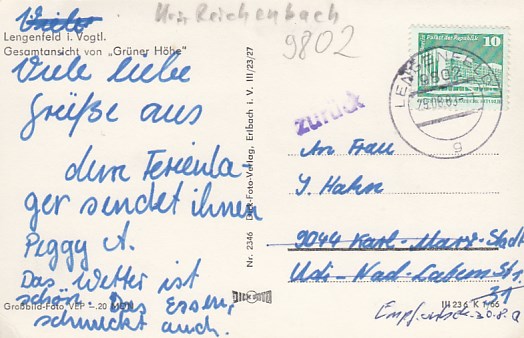 Lengenfeld i. Vogtl.
Gesamtansicht von „Grüner Höhe"
Reichenbach
9802
Viele liebe
Grüße aus
dem Ferienla
ger sendet ihnen
Peggy A.
Das Wetter ist
schön. Das Essen,
schmeckt auch.
Großbild-Foto VEP –.20 MDN
Nr. 2346 Dick-Foto-Verlag, Erlbach i. V. III/23/27
DICK
10
Palast der Republik
9802
29.08.83
g
zurück
An Frau
J. Hahn
9044 Karl-Marx-Stadt
Usti-Nad-Labem Str.
31
III 23 6 K 1/66